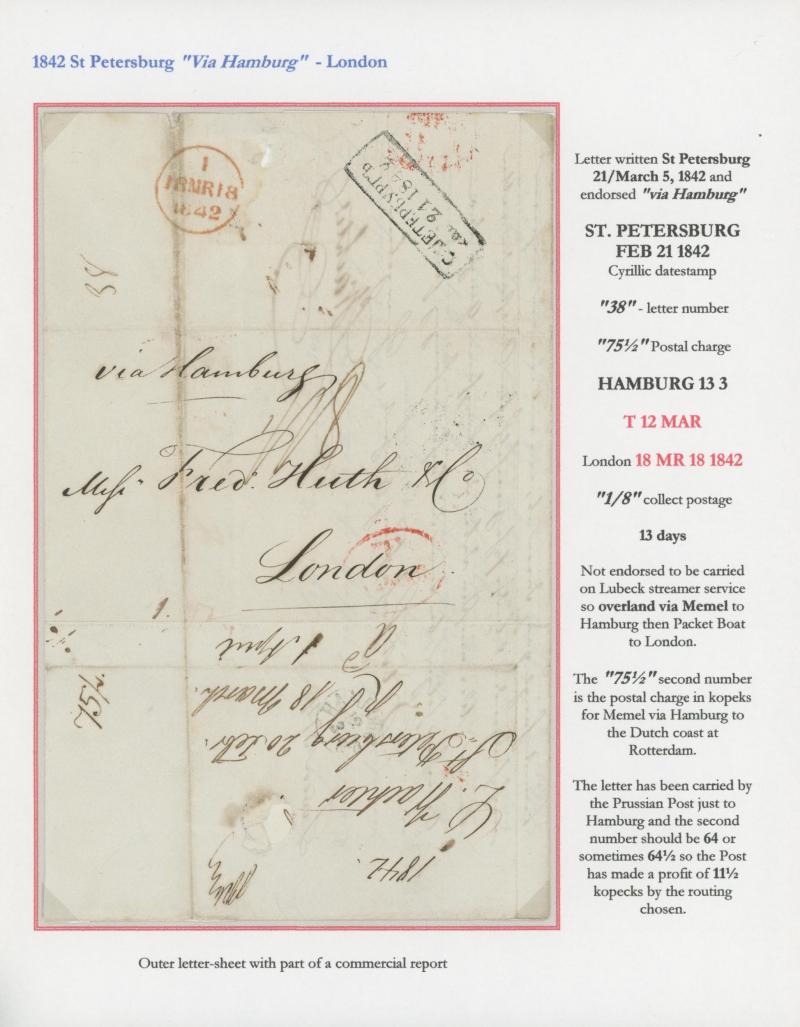 1842 St Petersburg "Via Hamburg" - London
1
18MR18
1842
С.ПЕТЕРБУРГЪ
21 1842
38
via Hamburg
Messrs Fred. Huth & Co
London
1.
1 April
18 March
St Petersburg 20 Febr.
1842
75½
Letter written St Petersburg
21/March 5, 1842 and
endorsed "via Hamburg"
ST. PETERSBURG
FEB 21 1842
Cyrillic datestamp
"38" - letter number
"75½" Postal charge
HAMBURG 13 3
T 12 MAR
London 18 MR 18 1842
"1/8" collect postage
13 days
Not endorsed to be carried
on Lubeck streamer service
so overland via Memel to
Hamburg then Packet Boat
to London.
The "75½" second number
is the postal charge in kopeks
for Memel via Hamburg to
the Dutch coast at
Rotterdam.
The letter has been carried by
the Prussian Post just to
Hamburg and the second
number should be 64 or
sometimes 64½ so the Post
has made a profit of 11½
kopecks by the routing
chosen.
Outer letter-sheet with part of a commercial report